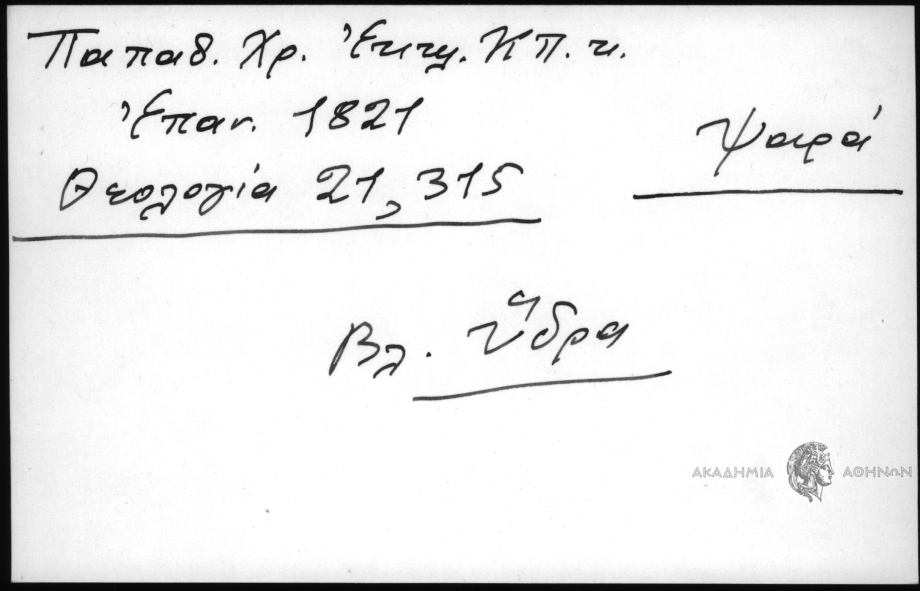 Παπαδ. Χρ. Ἐκκλ. ΚΠ. κ.
Ἐπαν. 1821
Ψαρά
Θεολογία 21, 315
Βλ. Ὕδρα
ΑΚΑΔΗΜΙΑ ΑΘΗΝΩΝ